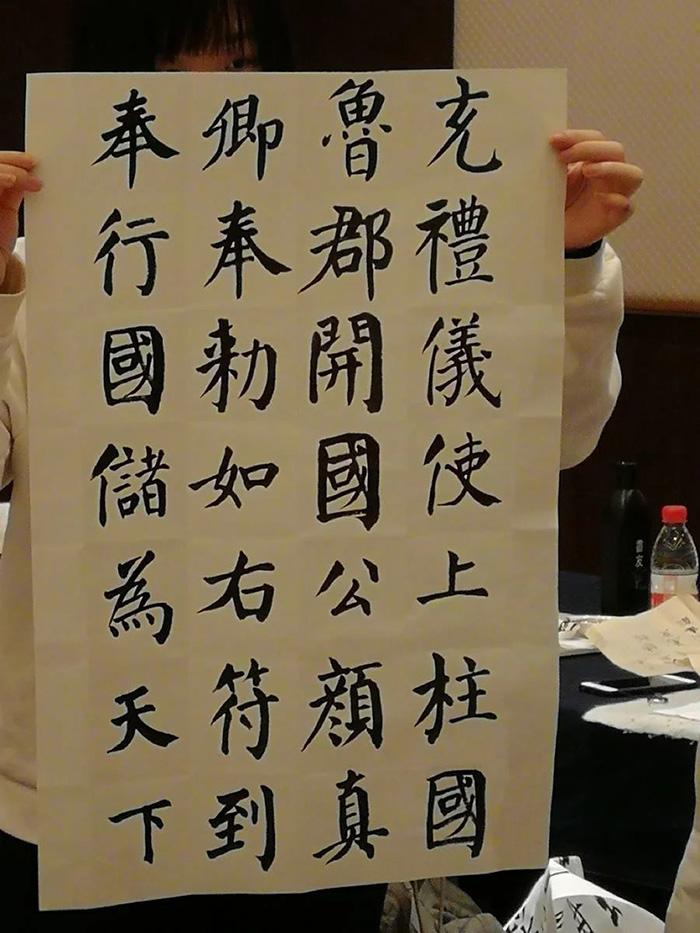 充禮儀使上柱國
魯郡開國公顏真
卿奉勑如右符到
奉行國儲為天下